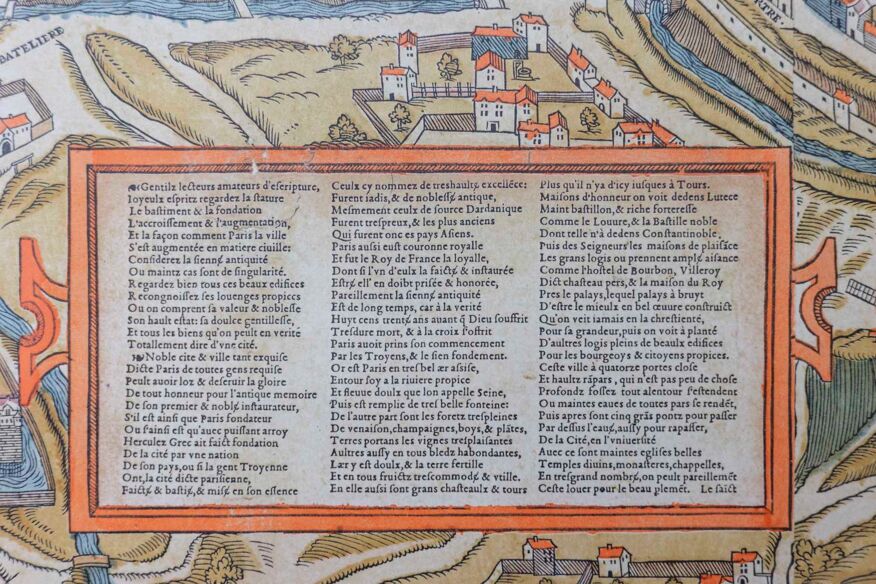 BATELIERE
RTRE
Gentilz lecteurs amateurs d'escripture,
Ioyeulx espritz regardez la stature
Le bastiment & la fondation
L'accroissement & l'augmentation,
Et la façon comment Paris la ville
S'est augmentée en matiere ciuille:
Considerez la sienne antiquité
Ou maintz cas sont de singularité.
Regardez bien tous ces beaux edifices
Recongnoissez ses louenges propices
Ou on comprent sa valeur & noblesse
Son hault estat: sa doulce gentillesse,
Et tous les biens qu'on peult en verité
Totallement dire d'vne cité.
Noble cité & ville tant exquise
Dicte Paris de toutes gens requise
Peult auoir loz & deseruir la gloire
De tout honneur pour l'antique memoire
De son premier & noble instaurateur,
S'il est ainsi que Paris fondateur
Ou sainsi est qu'auec puissant arroy
Herculez Grec ait faict fondation
De la cité par vne nation
De son pays, ou si la gent Troyenne
Ont, la cité dicte parisienne,
Faicte & bastie, & mise en son essence
Ceulx cy nommez de treshaulte excellēce:
Furent iadis, & de noblesse antique,
Mesmement ceulx de source Dardanique
Furent trespreux, & les plus anciens
Qui furent onc es pays Asiens.
Paris aussi eust couronne royalle
Et fut le Roy de France la loyalle,
Dont si l'vn d'eulx la faicte & instaurée
Estre ell' en doibt prisée & honorée,
Pareillement la sienne antiquité
Est de long temps, car à la verité
Huyt cens trente ans auant q̄ Dieu souffrit
Tresdure mort, & à la croix s'offrit
Paris auoit prins son commencement
Par les Troyens, & le sien fondement.
Or est Paris en tresbel ær assise,
Entour soy a la riuiere propice
Et fleuue doulx que lon appelle Seine,
Puis est remplie de tresbelle fonteine!
De l'autre part sont les foretz trespleines
De venaison, champaignes, boys, & plātes,
Terres portans les vignes tresplaisantes
Aultres aussy en tous bledz habondantes,
L'ær y est doulx, & la terre fertille
Et en tous fruictz trescommode & vtille.
En elle aussi sont grans chasteaulx & tours
Plus qu'il n'y a d'icy iusques à Tours.
Maisons d'honneur on voit dedens Lutece
Maint bastillon, & riche forteresse
Comme le Louure, & la Bastille noble
Dont telle n'à dedens Constantinoble,
Puis des Seigneurs les maisons de plaisāce
Les grans logis ou prennent ample aisance
Comme l'hostel de Bourbon, Villeroy
Dict chasteau pers, & la maison du Roy
Pres le palays, lequel palays à bruyt
D'estre le mieulx en bel œuure construict
Qu'on veit iamais en la chrestienté,
Pour sa grandeur, puis on voit à planté
D'aultres logis pleins de beaulx edifices
Pour les bourgeoys & citoyens propices.
Ceste ville à quatorze portes close
Et haultz rāpars, qui n'est pas peu de chose
Profondz fossez tout alentour s'estendent
Ou mainctes eaues de toutes pars se rendēt,
Puis apres sont cinq grās pontz pour passer
Par dessus l'eaue, aussy pour rapasser,
De la Cité, en l'vniuersité
Auec ce sont maintes eglises belles
Temples diuins, monasteres, chappelles,
En tresgrand nombre, on peult pareillemēt
Ceste louer pour le beau plemēt. Le faict